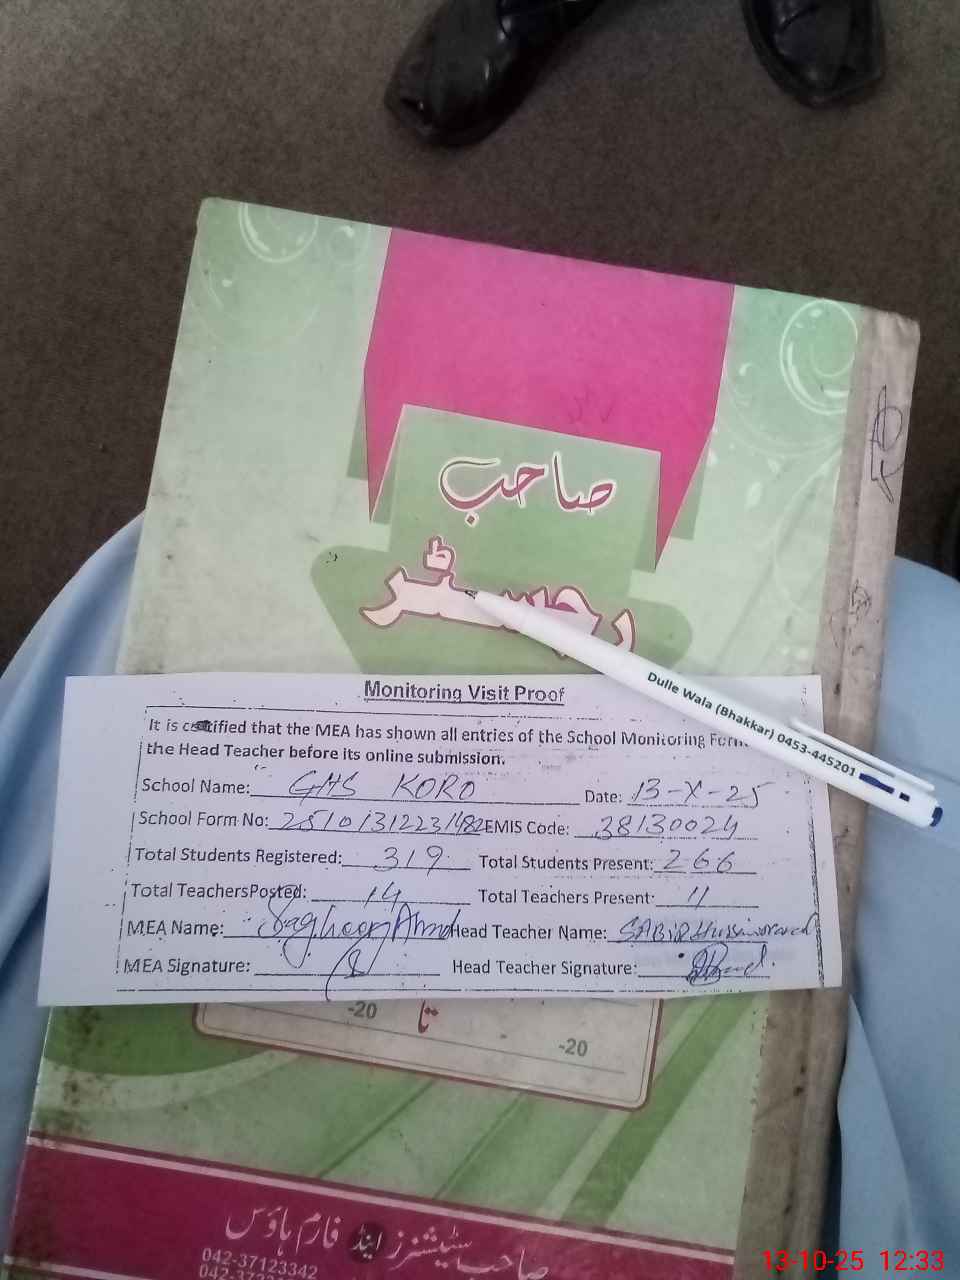 صاحب
رجسٹر
Dulle Wala (Bhakkar) 0453-445201
Monitoring Visit Proof
It is certified that the MEA has shown all entries of the School Monitoring Form
the Head Teacher before its online submission.
School Name: GHS KORO Date: 13-X-25
School Form No: 25101312231482 EMIS Code: 38130024
Total Students Registered: 319 Total Students Present: 266
Total TeachersPosted: 14 Total Teachers Present: 11
MEA Name: Head Teacher Name: SABIR Hussain
MEA Signature: Head Teacher Signature:
-20 تا -20
صاحب سٹیشنرز اینڈ فارم ہاؤس
042-37123342
13-10-25 12:33